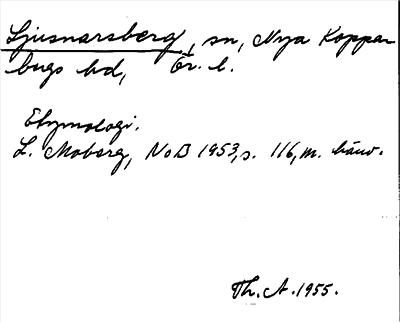 Ljusnarsberg, sn, Nya Koppar
bergs hd, Ör. l.
Etymologi.
L. Moberg, NoB 1953, s. 116, m. hänv.
Th. A. 1955.